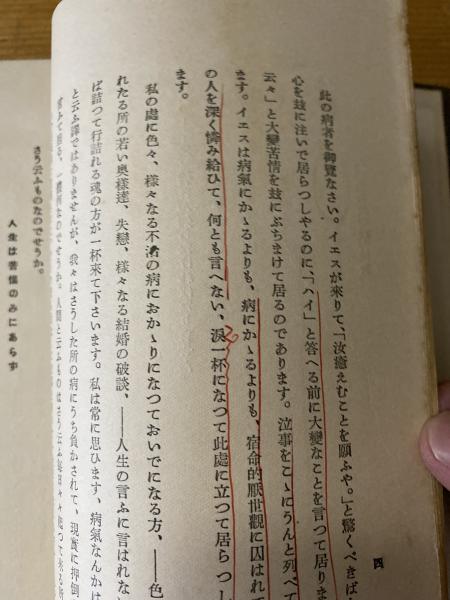 四
此の病者を御覽なさい。イエスが來りて、「汝癒えむことを願ふや。」と驚くべきば
心を玆に注いで居らつしやるのに、「ハイ」と答へる前に大變なことを言つて居りま
云々」と大變苦情を玆にぶちまけて居るのであります。泣事をこゝにうんと列べて
ます。イエスは病氣にかゝるよりも、病にかゝるよりも、宿命的厭世觀に囚はれて
の人を深く憐み給ひて、何とも言へない、涙一杯になつて此處に立つて居らつし
ます。
私の處に色々、樣々なる不治の病におかゝりになつておいでになる方、——色
れたる所の若い奥樣達、失戀、樣々なる結婚の破談、——人生の言ふに言はれな
ば詰つて行詰れる魂の方が一杯來て下さいます。私は常に思ひます、病氣なんかは
と云ふ譯ではありませんが、我々はさうした所の病にうち負かされて、現實に押倒
のでせうか。人間と云ふものはさう云ふ
さう云ふものなのでせうか。
人生は苦惱のみにあらず